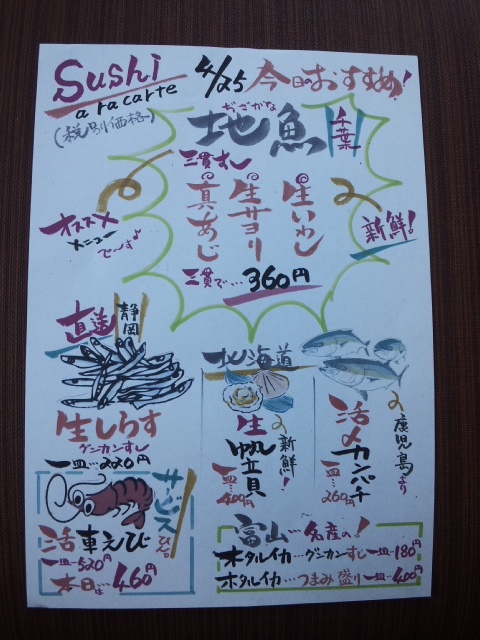 Sushi
a racarte
4/25 今日のおすすめ!
(税別価格)
ぢざかな
地魚
千葉
三貫すし
生いわし
生サヨリ
真あじ
三貫で…360円
新鮮!
オススメ
メニュー
で〜す♪
直送
静岡
生しらす
グンカンすし
一皿…220円
北海道
生帆立貝
新鮮!
一皿…400円
活〆カンパチ
鹿児島より
一皿…260円
サービス品
活車えび
一皿…520円
本日は460円
富山…名産の!
ホタルイカ…グンカンすし一皿…180円
ホタルイカ…つまみ盛り一皿…400円